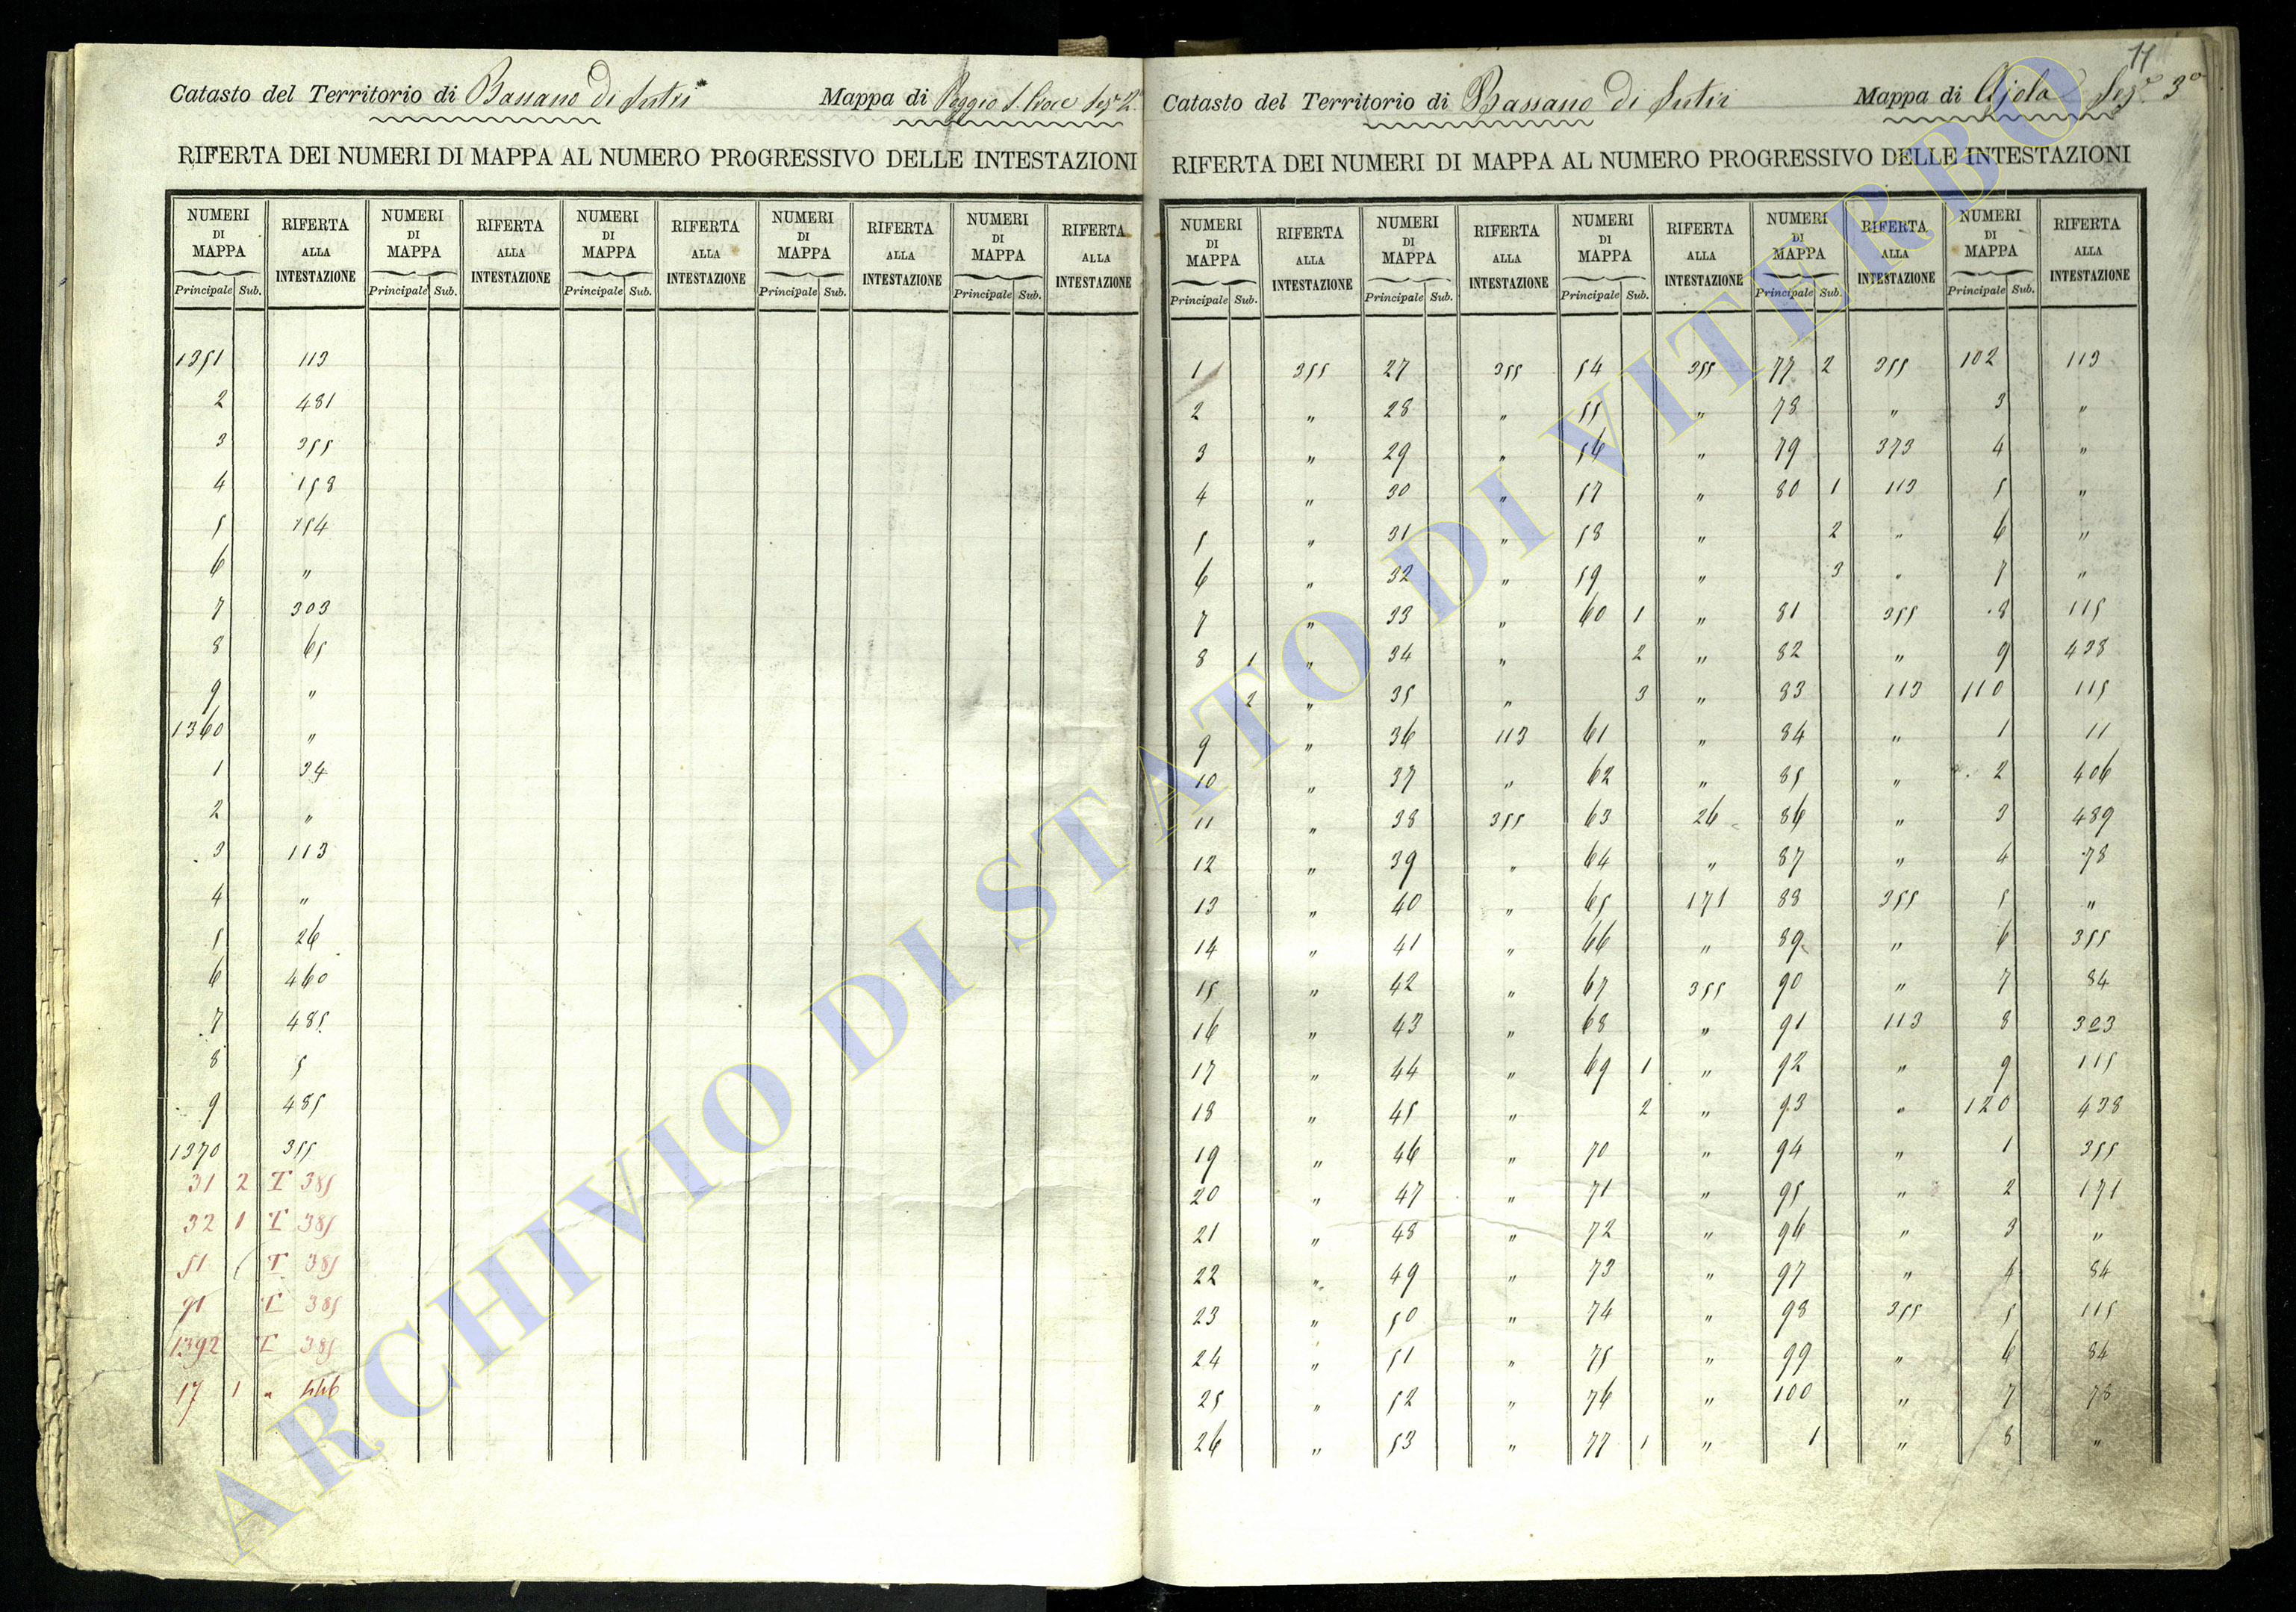 Catasto del Territorio di Bassano di Sutri Mappa di Poggio S. Croce Sez.e 2.
RIFERTA DEI NUMERI DI MAPPA AL NUMERO PROGRESSIVO DELLE INTESTAZIONI
NUMERI DI MAPPA RIFERTA ALLA INTESTAZIONE NUMERI DI MAPPA RIFERTA ALLA INTESTAZIONE NUMERI DI MAPPA RIFERTA ALLA INTESTAZIONE NUMERI DI MAPPA RIFERTA ALLA INTESTAZIONE NUMERI DI MAPPA RIFERTA ALLA INTESTAZIONE
Principale Sub. Principale Sub. Principale Sub. Principale Sub. Principale Sub.
1351 113
2 481
3 355
4 158
5 154
6 "
7 303
8 65
9 "
1360 "
1 34
2 "
3 113
4 "
5 26
6 460
7 485
8 5
9 485
1370 355
31 2 T 385
32 1 T 385
51 T 385
91 T 385
1392 T 385
17 1 " 446
11
Catasto del Territorio di Bassano di Sutri Mappa di Ajola Sez.e 3a
RIFERTA DEI NUMERI DI MAPPA AL NUMERO PROGRESSIVO DELLE INTESTAZIONI
NUMERI DI MAPPA RIFERTA ALLA INTESTAZIONE NUMERI DI MAPPA RIFERTA ALLA INTESTAZIONE NUMERI DI MAPPA RIFERTA ALLA INTESTAZIONE NUMERI DI MAPPA RIFERTA ALLA INTESTAZIONE NUMERI DI MAPPA RIFERTA ALLA INTESTAZIONE
Principale Sub. Principale Sub. Principale Sub. Principale Sub. Principale Sub.
1 355 27 355 54 355 77 2 355 102 113
2 " 28 " 55 " 78 " 3 "
3 " 29 " 56 " 79 373 4 "
4 " 30 " 57 " 80 1 113 5 "
5 " 31 " 58 " 2 " 6 "
6 " 32 " 59 " 3 " 7 "
7 " 33 " 60 1 " 81 355 8 115
8 1 " 34 " 2 " 82 " 9 438
2 " 35 " 3 " 83 113 110 115
9 " 36 113 61 " 84 " 1 11
10 " 37 " 62 " 85 " 2 406
11 " 38 355 63 26 86 " 3 489
12 " 39 " 64 " 87 " 4 78
13 " 40 " 65 171 88 355 5 "
14 " 41 " 66 " 89 " 6 355
15 " 42 " 67 355 90 " 7 84
16 " 43 " 68 " 91 113 8 303
17 " 44 " 69 1 " 92 " 9 115
18 " 45 " 2 " 93 " 120 438
19 " 46 " 70 " 94 " 1 355
20 " 47 " 71 " 95 " 2 171
21 " 48 " 72 " 96 " 3 "
22 " 49 " 73 " 97 " 4 84
23 " 50 " 74 " 98 355 5 115
24 " 51 " 75 " 99 " 6 84
25 " 52 " 76 " 100 " 7 78
26 " 53 " 77 1 " 1 " 8 "
ARCHIVIO DI STATO DI VITERBO